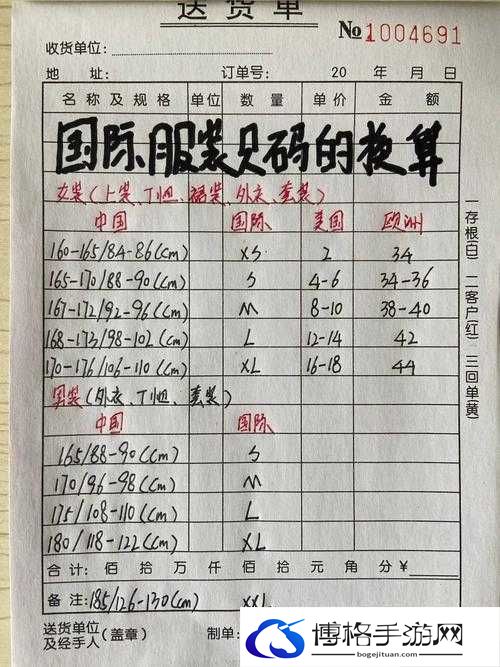 送货单
№1004691
收货单位:
地 址: 订单号: 20 年 月 日
名称及规格 单位 数量 单价 金额
国际服装尺码的换算
女装(上装、T恤、裙装、外衣、套装)
中国 国际 美国 欧洲
160-165/84-86(cm) XS 2 34
165-170/88-90(cm) S 4-6 34-36
167-172/92-96(cm) M 8-10 38-40
168-173/98-102(cm) L 12-14 42
170-176/106-110(cm) XL 16-18 44
男装(外衣、T恤、套装)
中国 国际
165/88-90(cm) S
170/96-98(cm) M
175/108-110(cm) L
180/118-122(cm) XL
合计: 佰 拾 万 仟 佰 拾 元 角 分 ¥
备注: 185/126-130(cm) XXL
送货单位及经手人(盖章) 制单:
一存根(白) 二客户(红) 三回单(黄)
博格手游网
bogejituan.com